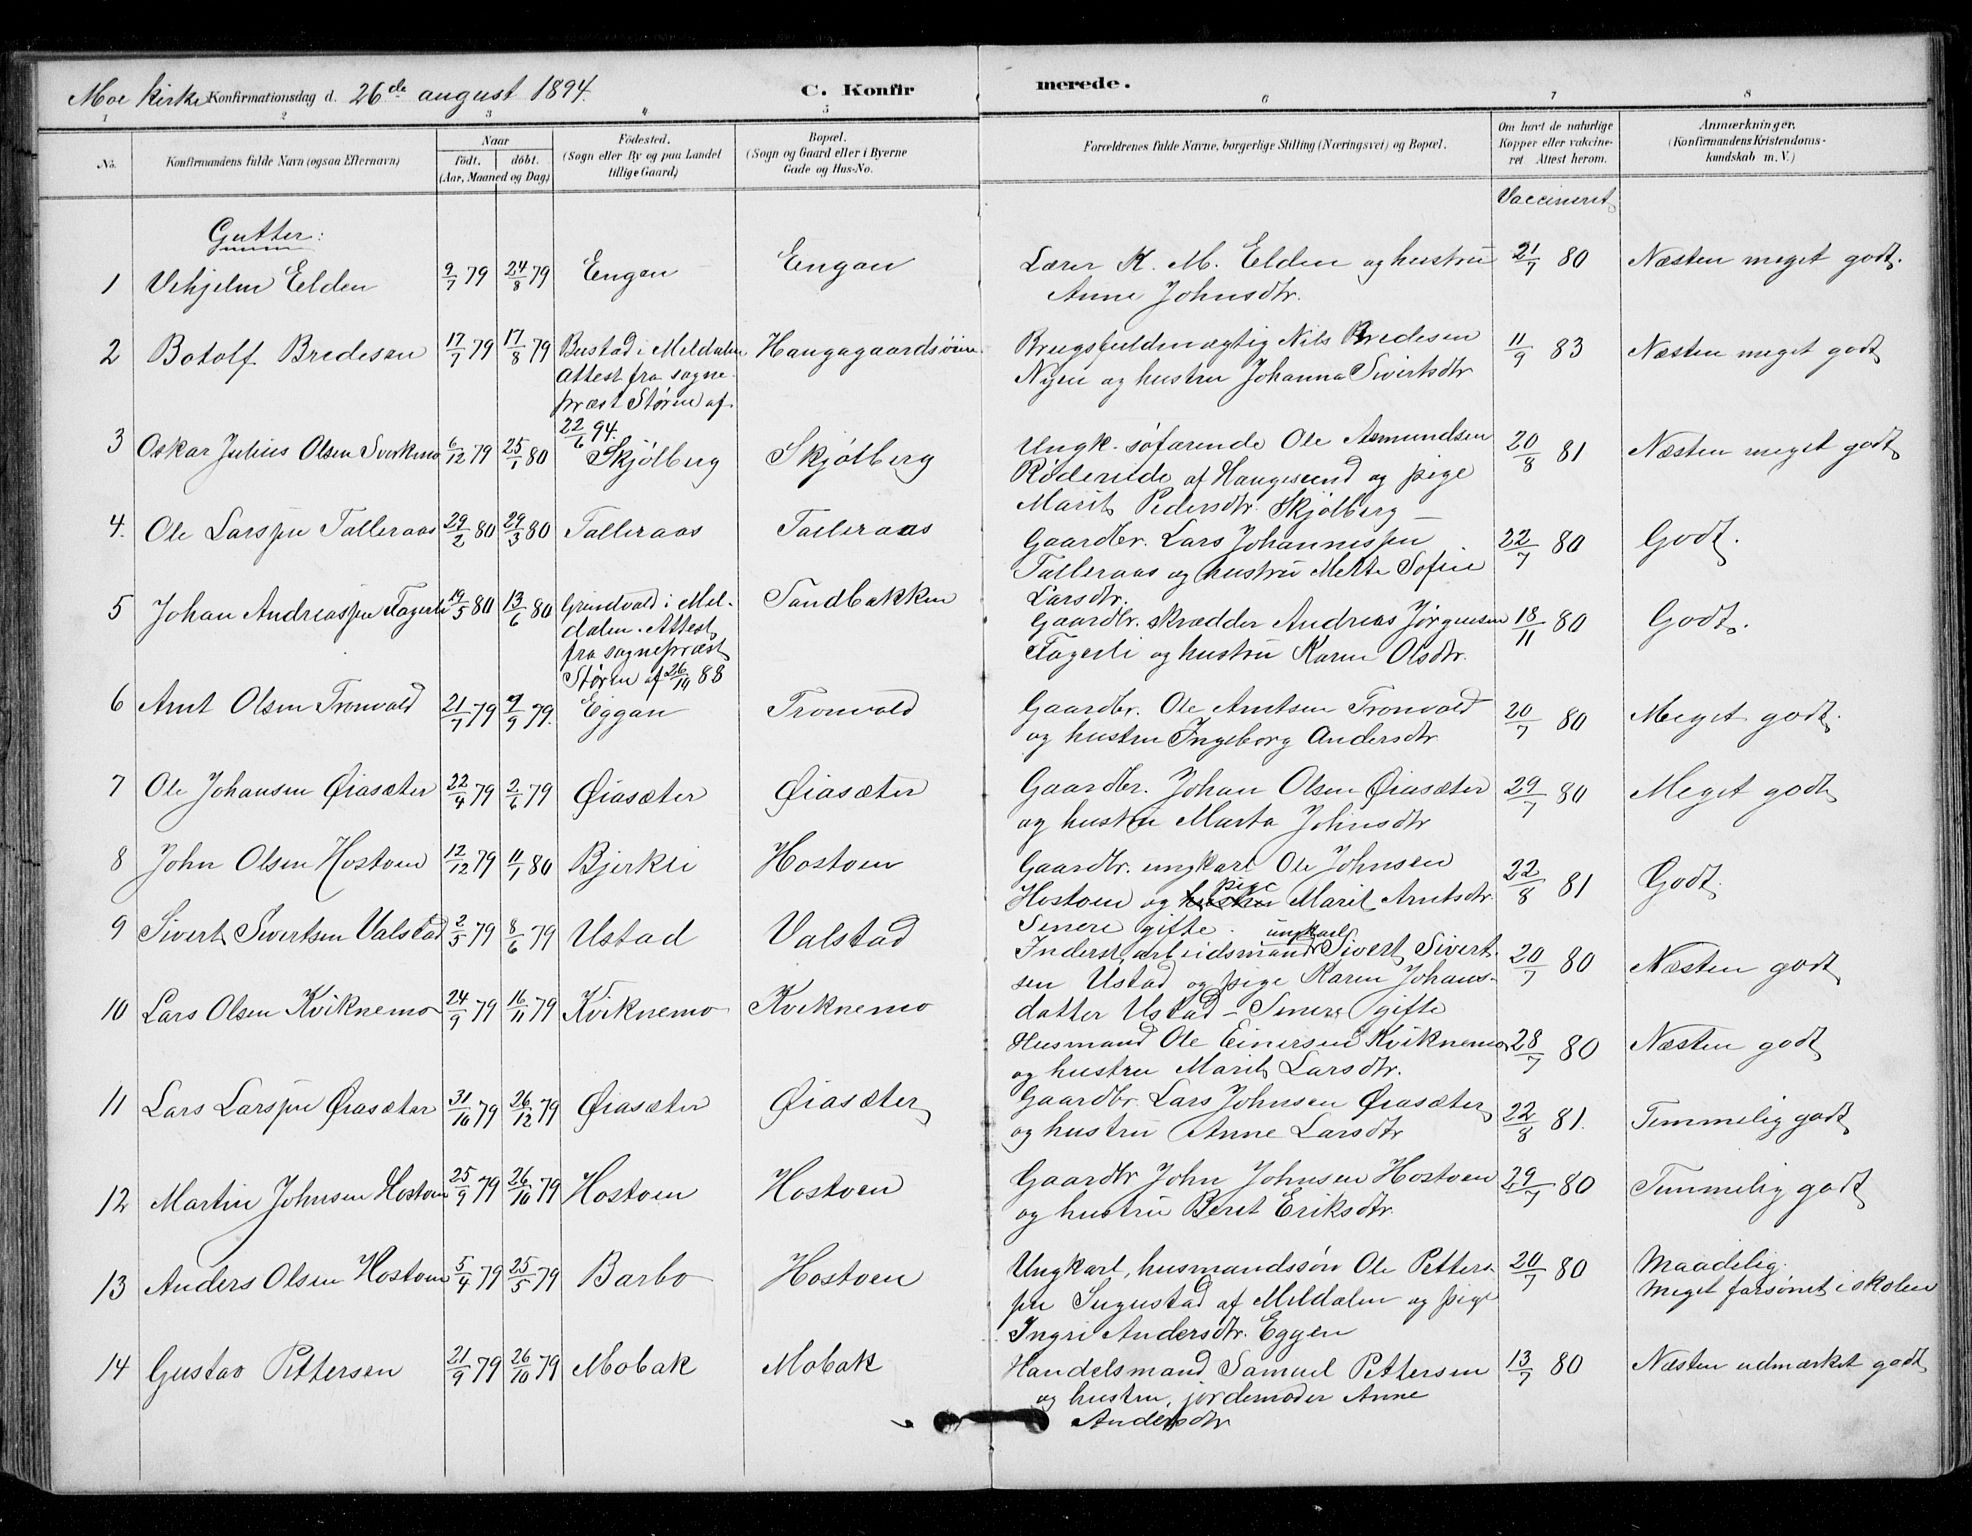 Moe kirke Konfirmationsdag d. 26de august 1894. C. Konfirmerede.
1 2 3 4 5 6 7 8
No. Konfirmandens fulde Navn (ogsaa Efternavn) Naar født. døbt. (Aar, Maaned og Dag) Fødested. (Sogn eller By og paa Landet tillige Gaard) Bopæl. (Sogn og Gaard eller i Byerne Gade og Hus-No. Forældrenes fulde Navne, borgerlige Stilling (Næringsvei) og Bopæl. Om havt de naturlige Kopper eller vakcineret Attest herom. Anmærkninger. (Konfirmandens Kristendomskundskab m. V.)
Vaccineret
Gutter:
1 Vilhjelm Elden 9/7 79 24/8 79 Engan Engan Lærer K. M. Elden og hustru 21/7 80 Næsten meget godt.
Anne Johnsdtr.
2 Botolf Bredesen 17/7 79 17/8 79 Bustad i Meldalen Haugagaardsøien Brugsfuldmægtig Nils Bredesen 11/9 83 Næsten meget godt
Attest fra sogne- Nyen og hustru Johanna Sivertsdtr
præst Støren af
22/6 94.
3 Oskar Julius Olsen Svorkmo 6/12 79 25/1 80 Skjølberg Skjølberg Ungk. søfarende Ole Asmundsen 20/8 81 Næsten meget godt
af Haugesund og pige
Marit Pedersdtr. Skjølberg
4. Ole Larssen Talleraas 29/2 80 29/3 80 Talleraas Talleraas Gaardbr. Lars Johannessen 22/7 80 Godt.
Talleraas og hustru Mette Sofie
Larsdtr.
5 Johan Andreassen Fagerli 19/5 80 13/6 80 Grindvold i Mel- Sandbakken Gaardbr. skrædder Andreas Jørgensen 18/11 80 Godt.
dalen. Attest Fagerli og hustru Karen Olsdtr.
fra sognepræst
Støren af 26/10 88
6 Arnt Olsen Tronvold 21/7 79 7/9 79. Eggan Tronvold Gaardbr. Ole Arntsen Tronvold 20/7 80 Meget godt.
og hustru Ingeborg Andersdtr
7 Ole Johansen Øiasæter 22/4 79 2/6 79 Øiasæter Øiasæter Gaardbr. Johan Olsen Øiasæter 29/7 80 Meget godt
og hustru Marta Johnsdtr
8 John Olsen Hostoen 12/12 79 11/1 80 Bjerkli Hostoen Gaardbr. ungkarl Ole Johnsen 22/8 81 Godt.
Hostoen og hustru pige Marit Arntsdtr.
Senere gifte.
9 Sivert Sivertsen Valstad 2/5 79 8/6 79 Ustad Valstad Inderst, arbeidsmand ungkarl Sivert Sivert- 20/7 80 Næsten godt
sen Ustad og pige Karen Johans-
datter Ustad – Senere gifte
10 Lars Olsen Kviknemo 24/9 79 16/11 79 Kviknemo Kviknemo Husmand Ole Einersen Kviknemo 28/7 80 Næsten godt
og hustru Marit Larsdtr.
11 Lars Larssen Øiasæter 31/10 79 26/12 79 Øiasæter Øiasæter Gaardbr. Lars Johnsen Øiasæter 22/8 81. Temmelig godt
og hustru Anne Larsdtr
12 Martin Johnsen Hostoen 25/9 79 26/10 79 Hostoen Hostoen Gaardbr John Johnsen Hostoen 29/7 80 Temmelig godt
og hustru Beret Eriksdtr.
13 Anders Olsen Hostoen 5/4 79 25/5 79 Barbo Hostoen Ungkarl, husmandssøn Ole Petters- 20/7 80 Maadelig.
sen Sugustad af Meldalen og pige Meget forsømt i skolen
Ingri Andersdtr. Eggen
14 Gustav Pettersen 21/9 79 26/10 79 Mobak Mobak Handelsmand Samuel Pettersen 13/7 80 Næsten udmærket godt
og hustru, jordemoder Anne
Andersdtr